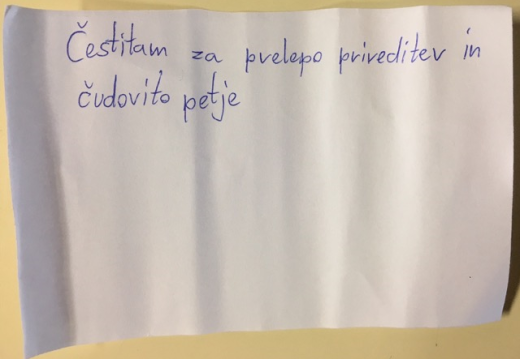 Čestitam za prelepo prireditev in
čudovito petje